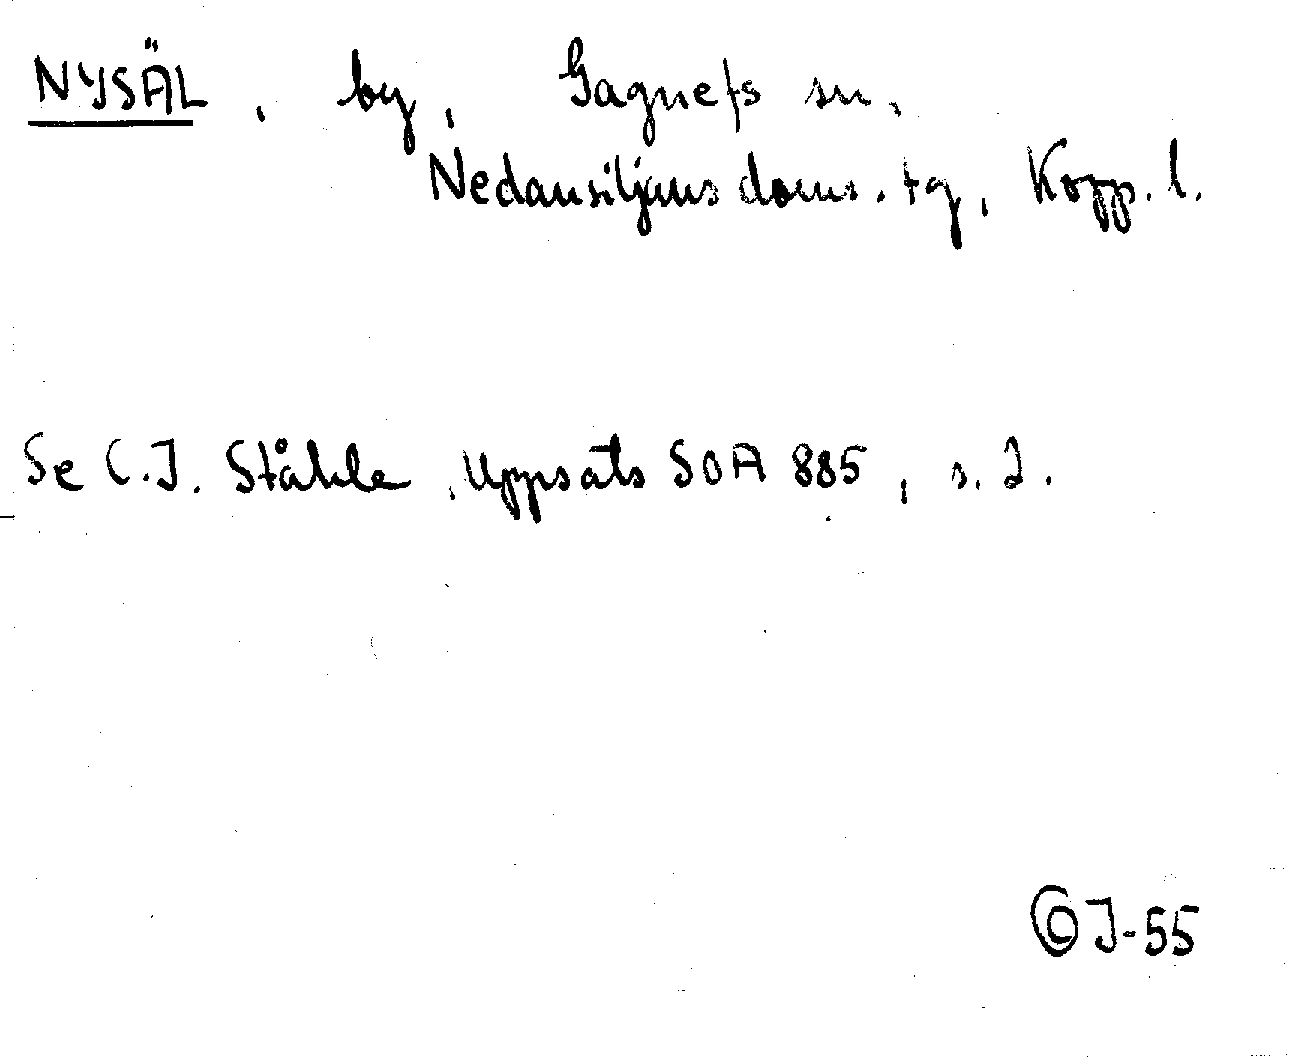 NYSÄL, by, Gagnefs sn,
Nedansiljans doms. tg, Kopp. l.
Se C.I. Ståhle, Uppsats SOA 885, s. 2.
© J-55